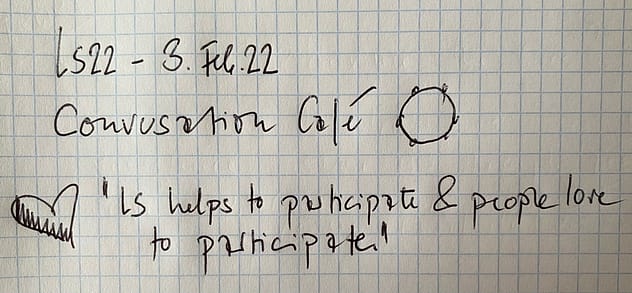 LS22 - 3. Feb. 22
Conversation Café
"LS helps to participate & people love
to participate"